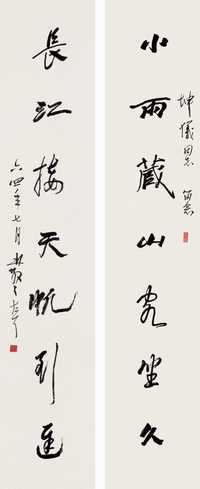 小雨藏山客坐久
坤儀同志留念
長江接天帆到遲
六四年七月林散之左耳